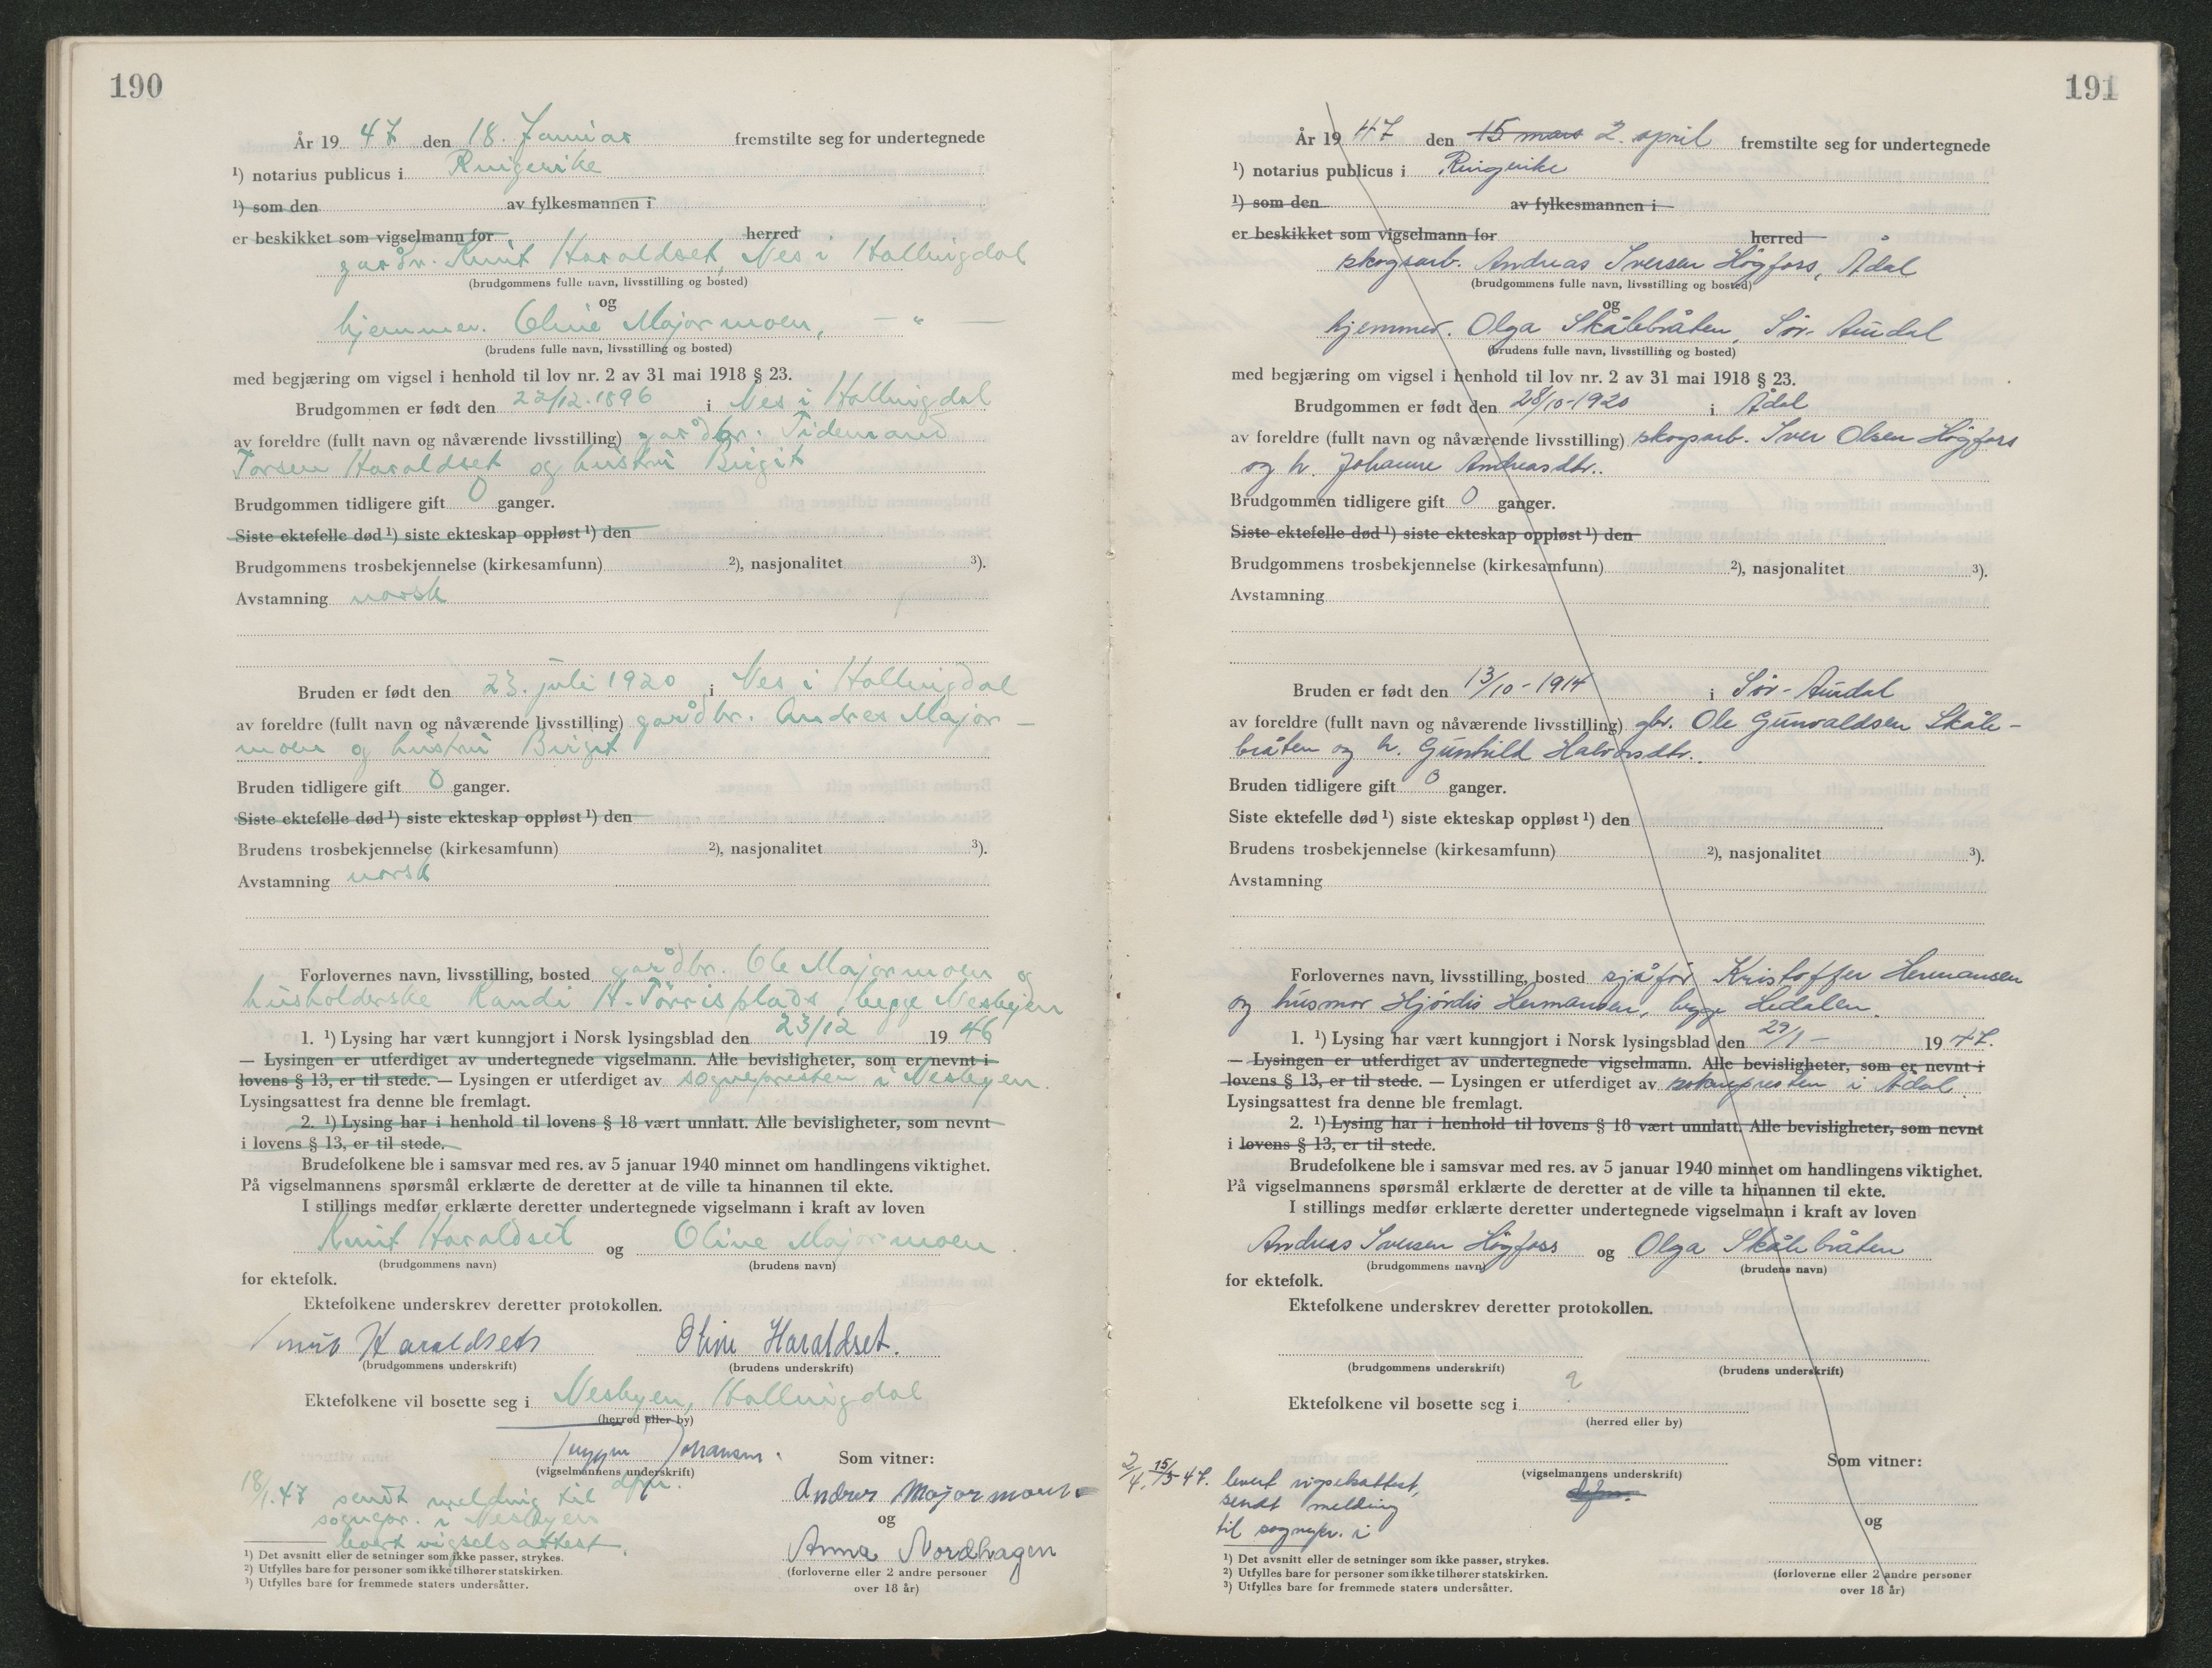 190
År 19 47 den 18. Januar fremstilte seg for undertegnede
¹) notarius publicus i Ringerike
¹) som den av fylkesmannen i
er beskikket som vigselmann for herred
gardbr. Knut Haraldset, Nes i Hallingdal
(brudgommens fulle navn, livsstilling og bosted)
og
hjemmev. Oline Majormoen, — " —
(brudens fulle navn, livsstilling og bosted)
med begjæring om vigsel i henhold til lov nr. 2 av 31 mai 1918 § 23.
Brudgommen er født den 22/12.1896 i Nes i Hallingdal
av foreldre (fullt navn og nåværende livsstilling) gardbr. Tidemand
Torsen Haraldset og hustru Birgit
Brudgommen tidligere gift 0 ganger.
Siste ektefelle død ¹) siste ekteskap oppløst ¹) den
Brudgommens trosbekjennelse (kirkesamfunn) ²), nasjonalitet ³).
Avstamning norsk
Bruden er født den 23. juli 1920 i Nes i Hallingdal
av foreldre (fullt navn og nåværende livsstilling) gardbr. Andres Major-
moen og hustru Birgit
Bruden tidligere gift 0 ganger.
Siste ektefelle død ¹) siste ekteskap oppløst ¹) den
Brudens trosbekjennelse (kirkesamfunn) ²), nasjonalitet ³).
Avstamning norsk
Forlovernes navn, livsstilling, bosted gardbr. Ole Majormoen og
husholderske Randi H. Tørrisplads, begge Nesbyen
1. ¹) Lysing har vært kunngjort i Norsk lysingsblad den 23/12 19 46
— Lysingen er utferdiget av undertegnede vigselmann. Alle bevisligheter, som er nevnt i
lovens § 13, er til stede. — Lysingen er utferdiget av sognepresten i Nesbyen.
Lysingsattest fra denne ble fremlagt.
2. ¹) Lysing har i henhold til lovens § 18 vært unnlatt. Alle bevisligheter, som nevnt
i lovens § 13, er til stede.
Brudefolkene ble i samsvar med res. av 5 januar 1940 minnet om handlingens viktighet.
På vigselmannens spørsmål erklærte de deretter at de ville ta hinannen til ekte.
I stillings medfør erklærte deretter undertegnede vigselmann i kraft av loven
Knut Haraldset og Oline Majormoen.
(brudgommens navn) (brudens navn)
for ektefolk.
Ektefolkene underskrev deretter protokollen.
Knut Haraldset Oline Haraldset.
(brudgommens underskrift) (brudens underskrift)
Ektefolkene vil bosette seg i Nesbyen, Hallingdal
(herred eller by)
Johansen. Som vitner:
(vigselmannens underskrift)
dfm.
18/1.47 sendt melding til
sognepr. i Nesbyen
levert vigselsattest.
Andres Majormoen
og
Anna Nordhagen
(forloverne eller 2 andre personer
over 18 år)
¹) Det avsnitt eller de setninger som ikke passer, strykes.
²) Utfylles bare for personer som ikke tilhører statskirken.
³) Utfylles bare for fremmede staters undersåtter.
191
År 19 47 den 15 mars 2. april fremstilte seg for undertegnede
¹) notarius publicus i Ringerike
¹) som den av fylkesmannen i
er beskikket som vigselmann for herred
skogsarb. Andreas Iversen Högfoss, Ådal
(brudgommens fulle navn, livsstilling og bosted)
og
hjemmev. Olga Skålebråten, Sør-Aurdal
(brudens fulle navn, livsstilling og bosted)
med begjæring om vigsel i henhold til lov nr. 2 av 31 mai 1918 § 23.
Brudgommen er født den 28/10-1920 i Ådal
av foreldre (fullt navn og nåværende livsstilling) skogsarb. Iver Olsen Högfoss
og h. Johanne Andreasdtr..
Brudgommen tidligere gift 0 ganger.
Siste ektefelle død ¹) siste ekteskap oppløst ¹) den
Brudgommens trosbekjennelse (kirkesamfunn) ²), nasjonalitet ³).
Avstamning
Bruden er født den 13/10-1914 i Sør-Aurdal
av foreldre (fullt navn og nåværende livsstilling) gbr. Ole Gunvaldsen Skåle-
bråten og h. Gunhild Halvorsdtr.
Bruden tidligere gift 0 ganger.
Siste ektefelle død ¹) siste ekteskap oppløst ¹) den
Brudens trosbekjennelse (kirkesamfunn) ²), nasjonalitet ³).
Avstamning
Forlovernes navn, livsstilling, bosted sjåför Kristoffer Hermansen
og husmor Hjördis Hermansen, begge Hedalen.
1. ¹) Lysing har vært kunngjort i Norsk lysingsblad den 29/1 - 19 47.
— Lysingen er utferdiget av undertegnede vigselmann. Alle bevisligheter, som er nevnt i
lovens § 13, er til stede. — Lysingen er utferdiget av soknepresten i Ådal.
Lysingsattest fra denne ble fremlagt.
2. ¹) Lysing har i henhold til lovens § 18 vært unnlatt. Alle bevisligheter, som nevnt
i lovens § 13, er til stede.
Brudefolkene ble i samsvar med res. av 5 januar 1940 minnet om handlingens viktighet.
På vigselmannens spørsmål erklærte de deretter at de ville ta hinannen til ekte.
I stillings medfør erklærte deretter undertegnede vigselmann i kraft av loven
Andreas Iversen Högfoss og Olga Skålebråten
(brudgommens navn) (brudens navn)
for ektefolk.
Ektefolkene underskrev deretter protokollen.
(brudgommens underskrift) (brudens underskrift)
Ektefolkene vil bosette seg i ?
(herred eller by)
Som vitner:
(vigselmannens underskrift)
dfm.
2/4. 15/3-47. levert vigselsattest,
sendt melding
til sognepr. i
og
(forloverne eller 2 andre personer
over 18 år)
¹) Det avsnitt eller de setninger som ikke passer, strykes.
²) Utfylles bare for personer som ikke tilhører statskirken.
³) Utfylles bare for fremmede staters undersåtter.